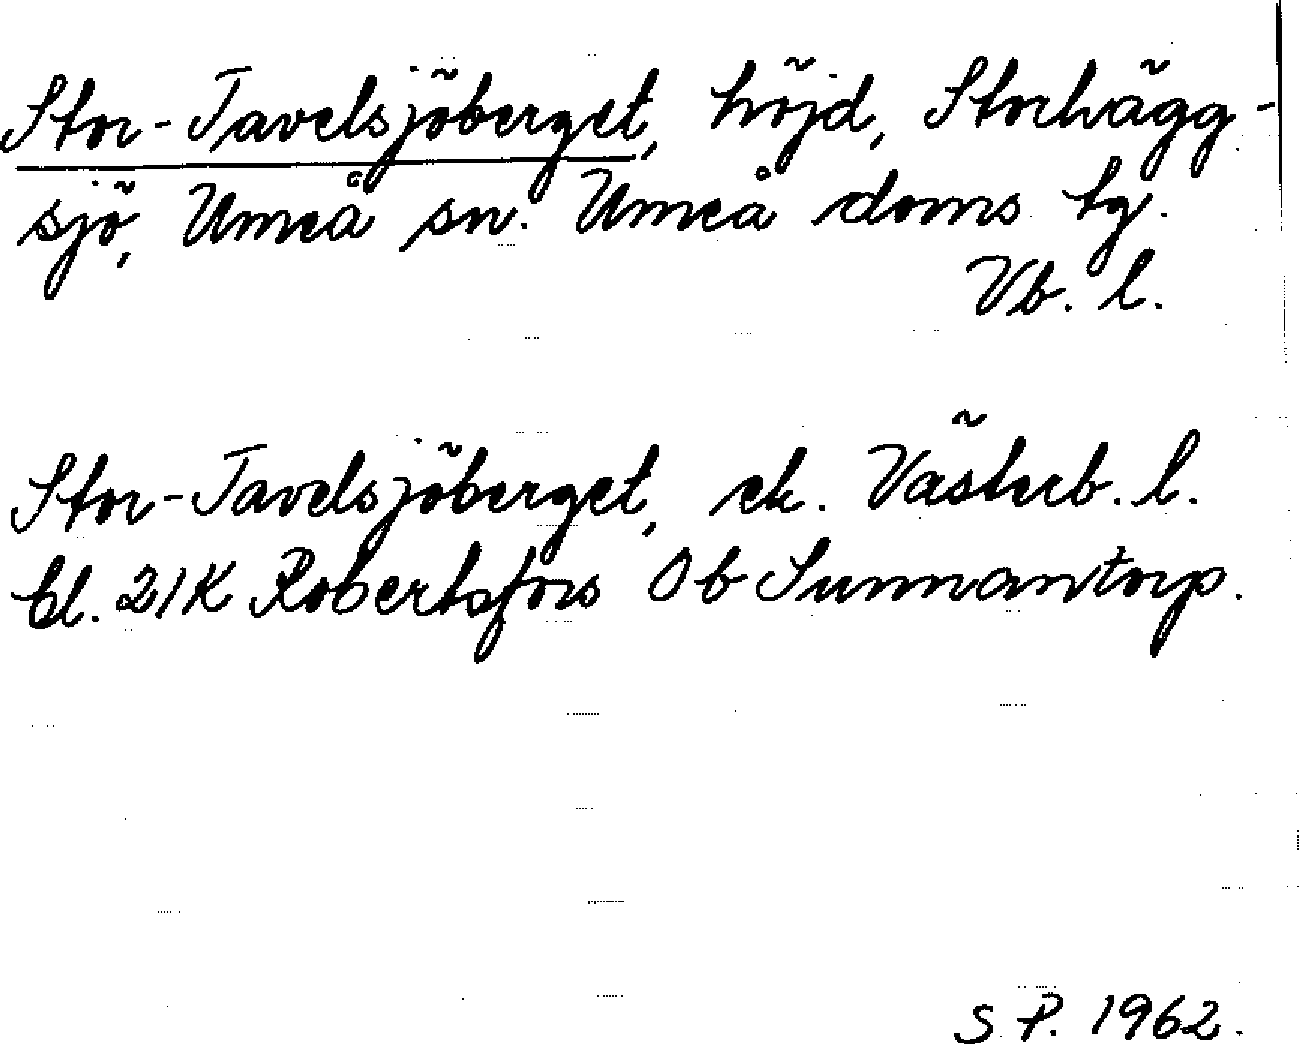 Stor-Tavelsjöberget, höjd, Storhägg-
sjö, Umeå sn. Umeå doms tg.
Vb. l.
Stor-Tavelsjöberget, ek. Västerb. l.
bl. 21K Robertsfors Ob Sunnantorp.
S P. 1962.